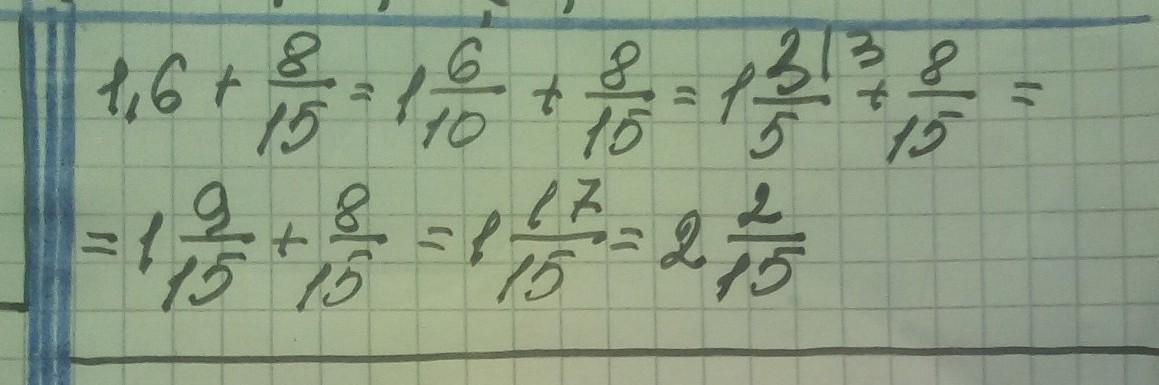 1,6 + 8/15 = 1 6/10 + 8/15 = 1 3/5 |3 + 8/15 =
= 1 9/15 + 8/15 = 1 17/15 = 2 2/15